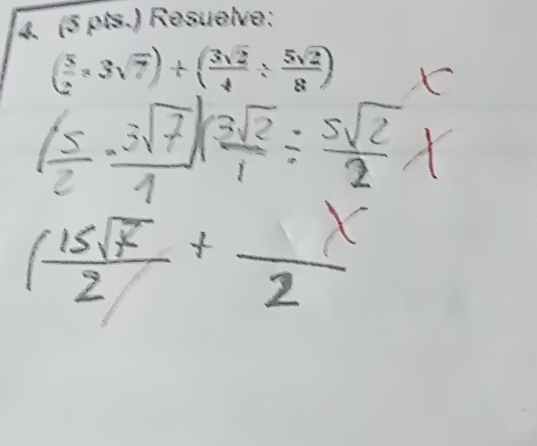 4. (5 pts.) Resuelve:
(5/2 × 3√7) + (3√2/4 ÷ 5√2/8)
(5/2 · 3√7/1)(3√2/1 ÷ 5√2/2
(15√7/2 + /2